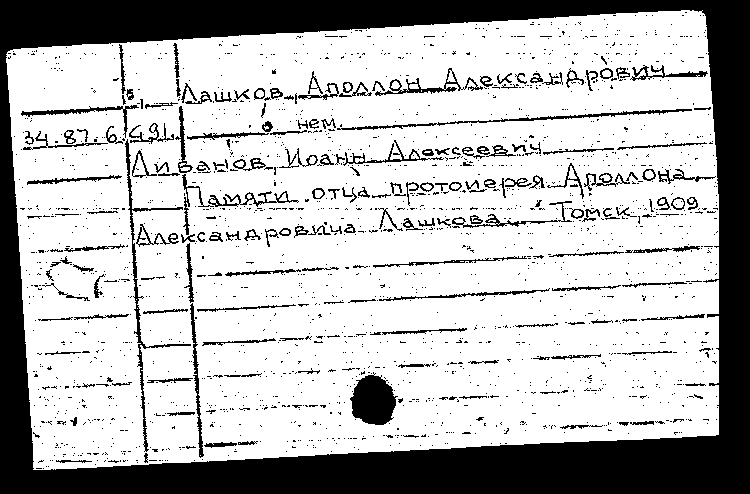 Лашков, Аполлон Александрович
34.87.6.491. о нем.
Ливанов, Иоанн Алексеевич
Памяти отца протоиерея Аполлона
Александровича Лашкова. Томск, 1909